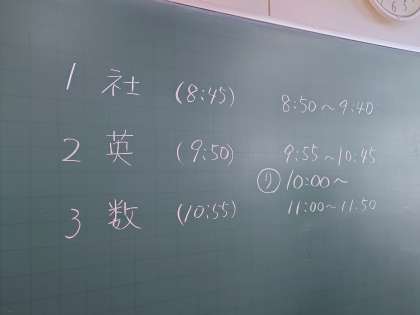 1 社 (8:45) 8:50〜9:40
2 英 (9:50) 9:55〜10:45
リ 10:00〜
3 数 (10:55) 11:00〜11:50